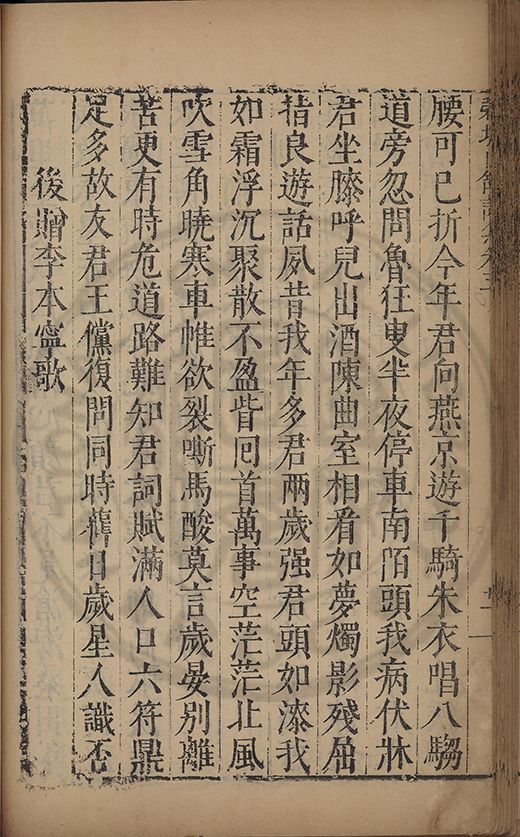 腰可已折今年君向燕京遊千騎朱衣唱八騶
道旁忽問魯狂叟半夜停車南陌頭我病伏牀
君坐膝呼兒出酒陳曲室相看如夢燭影殘屈
指良遊話夙昔我年多君兩歲强君頭如漆我
如霜浮沉聚散不盈眥囘首萬事空茫茫北風
吹雪角曉寒車帷欲裂嘶馬酸莫言歲晏別離
苦更有時危道路難知君詞賦滿人口六符鼎
足多故友君王儻復問同時聾日歲星人識否
後贈李本寧歌